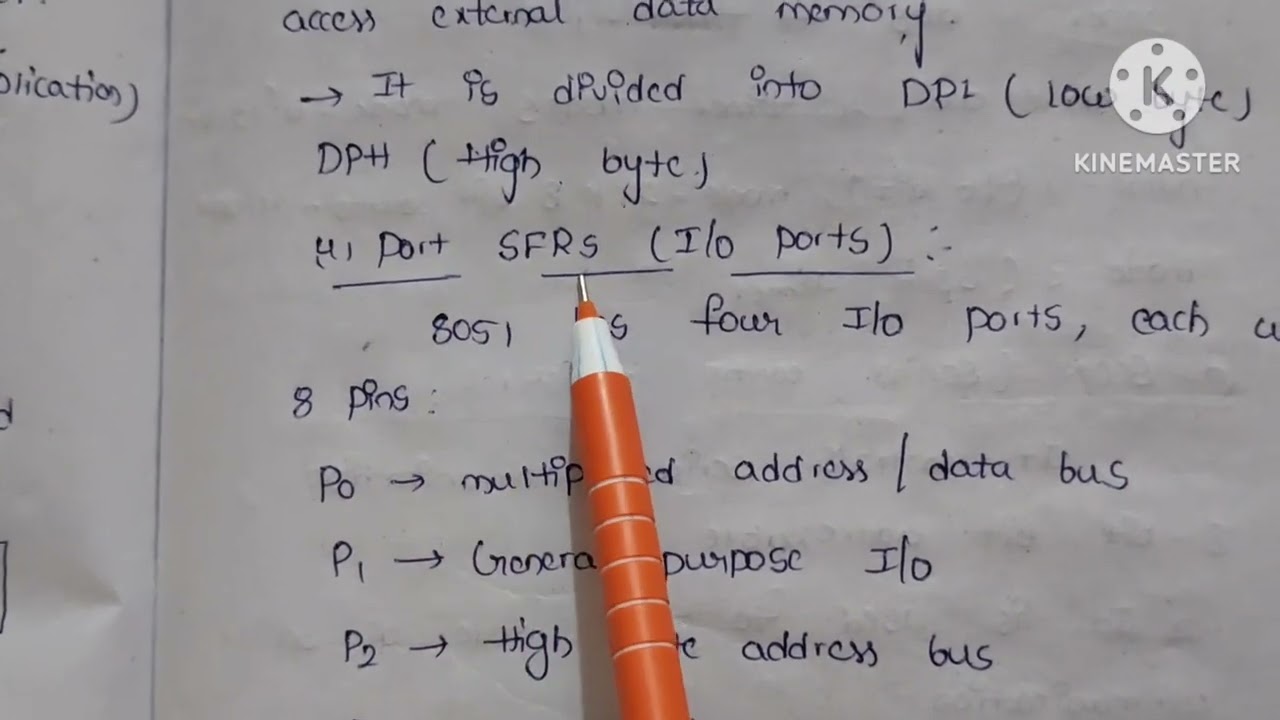 access external data memory.
→ It is divided into DPL (low byte)
DPH (High byte)
4) Port SFRs (I/o ports) :-
8051 four I/o ports, each
8 pins :
P0 → address / data bus
P1 → General purpose I/o
P2 → High address bus
plication)
KINEMASTER